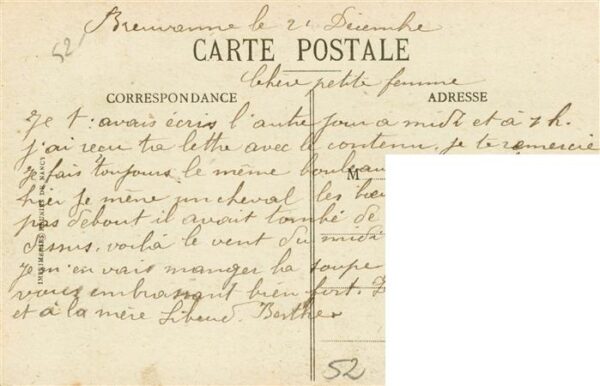 52
Breuvanne le 21 Décembre
CARTE POSTALE
Chere petite femme
CORRESPONDANCE
ADRESSE
Je t'avais écris l'autre jour a midi et à 7 h.
j'ai reçu ta lettre avec le contenu. je te remercie
je fais toujours le même
M
hier je mène un cheval les
pas debout il avait tombé de
dessus. voilà le vent du midi
Je m'en vais manger la soupe
vous embrassant bien fort.
et à la mère Berthe
IMPRIMERIES REUNIES DE NANCY
52